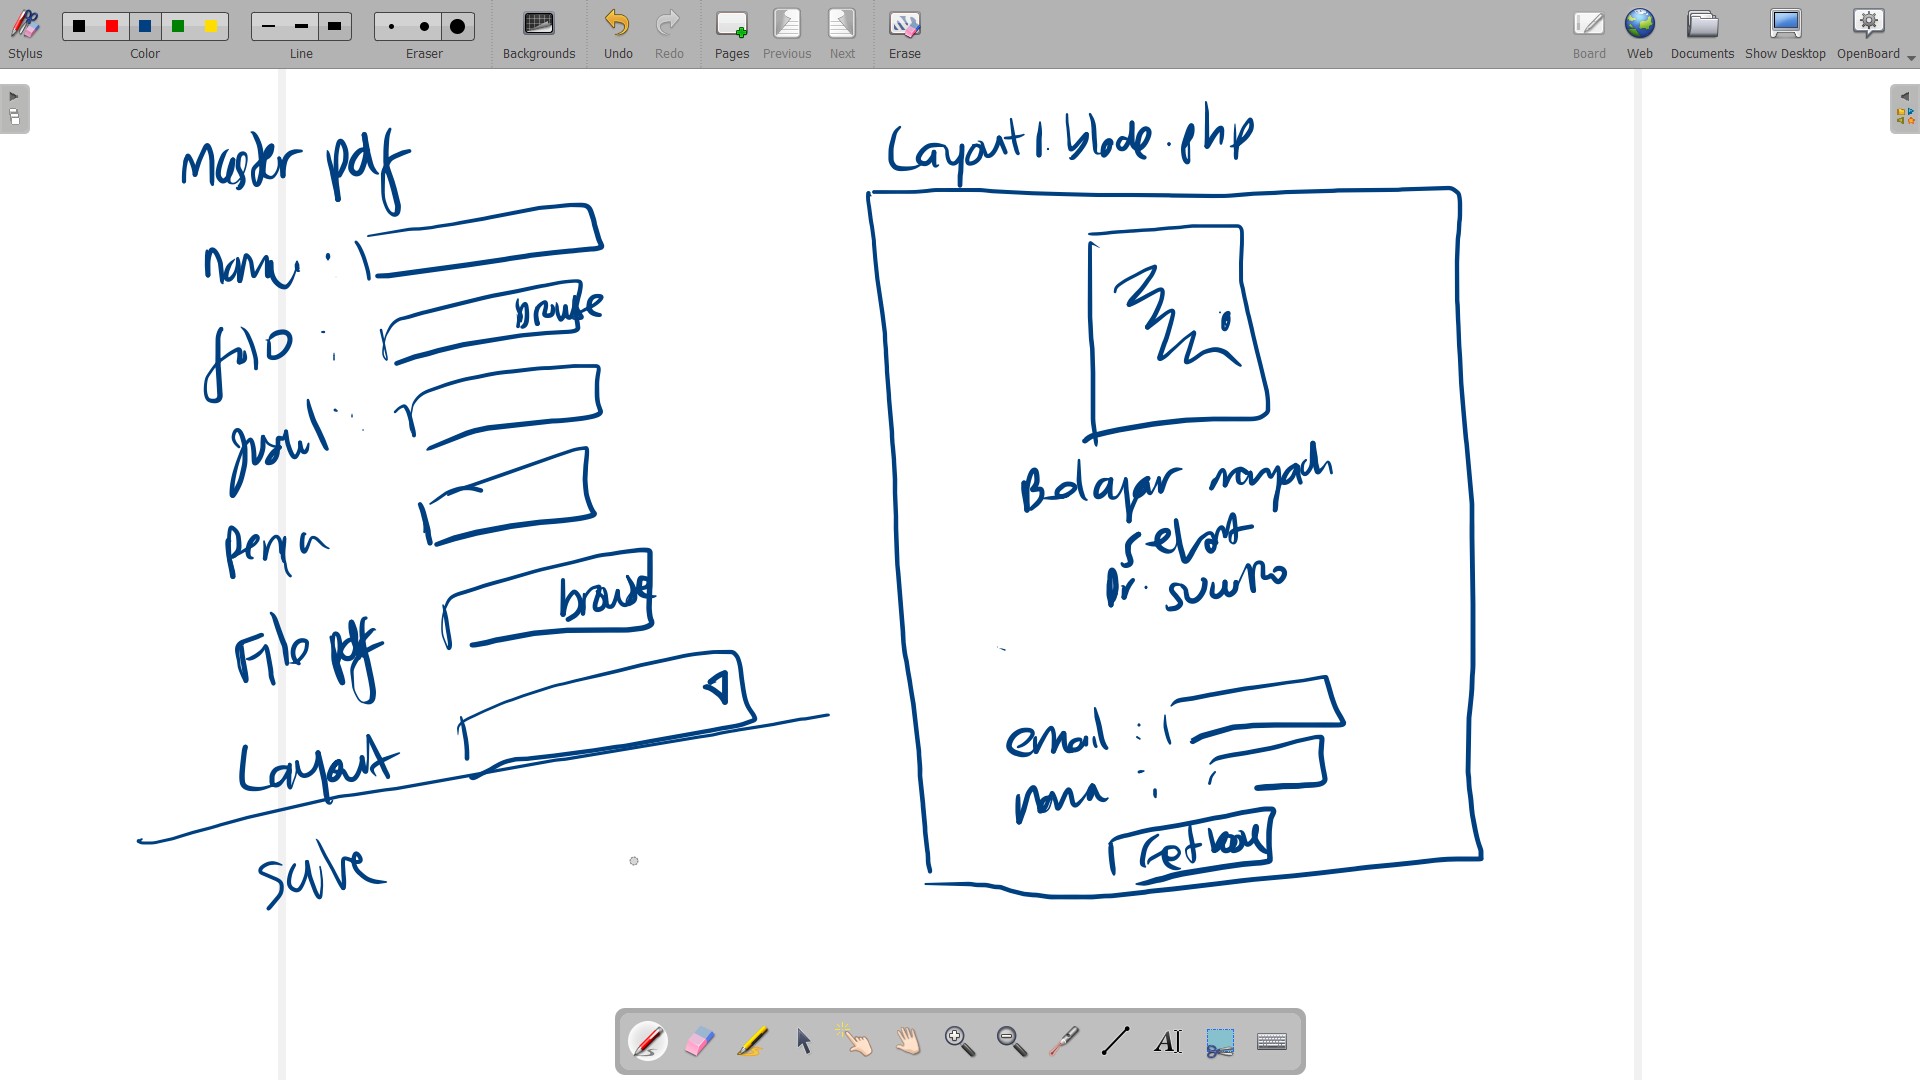 Stylus
Color
Line
Eraser
Backgrounds
Undo
Redo
Pages
Previous
Next
Erase
Board
Web
Documents
Show Desktop
OpenBoard
Master pdf
nama :
browse
judul :
File pdf
browse
Layout
save
Layout1.blade.php
Belajar
Dr.
email :
nama :
Get book